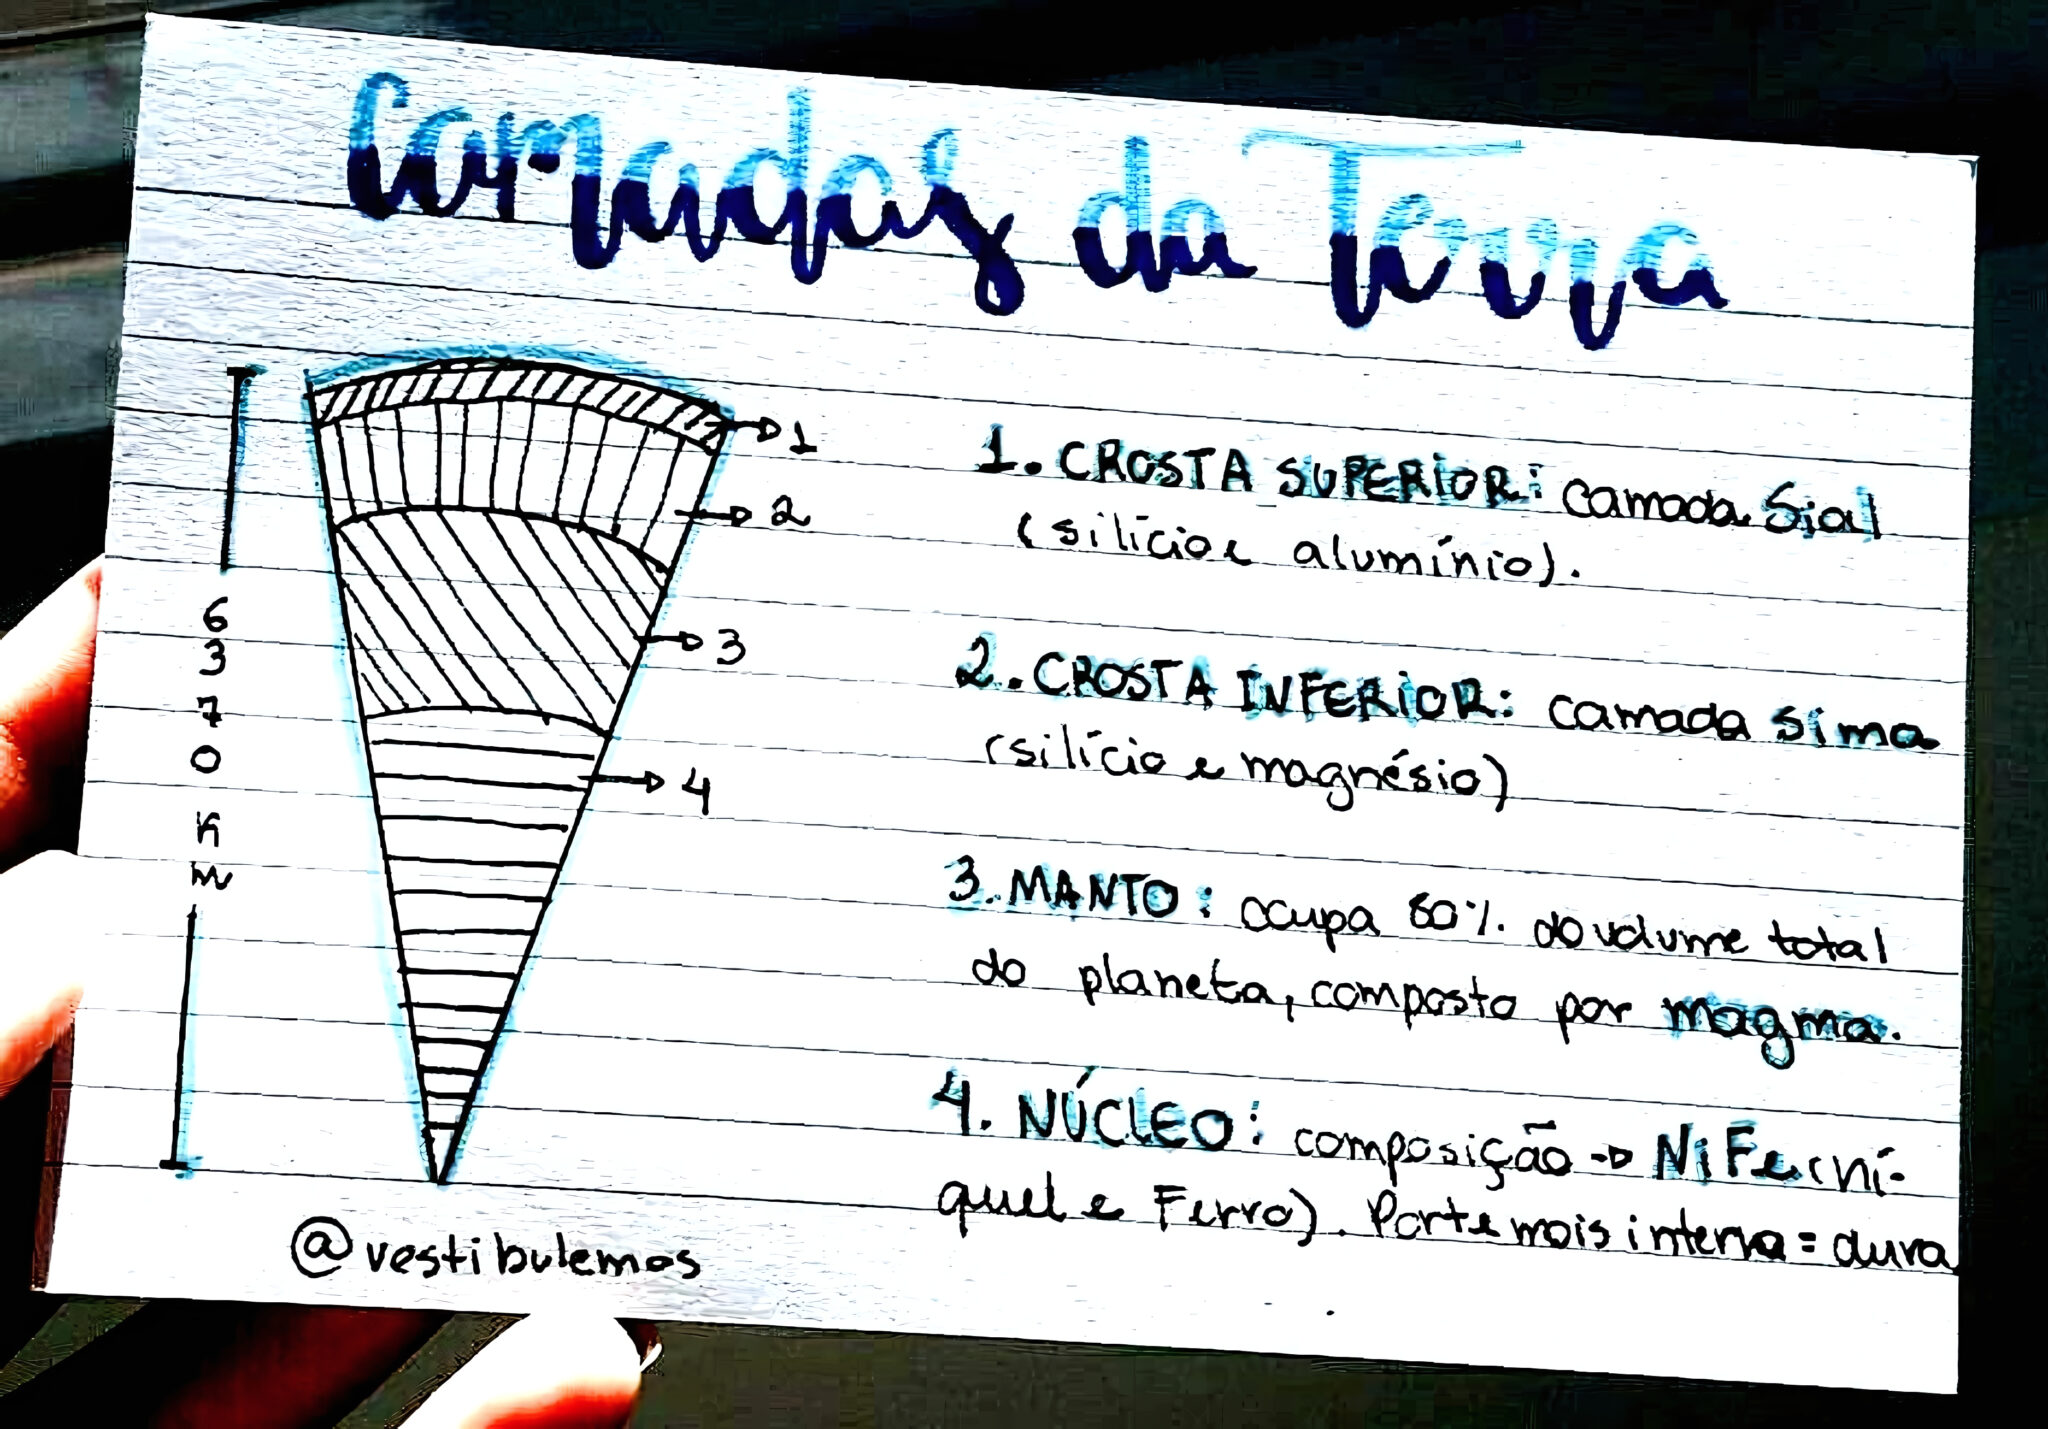 Camadas da Terra
1
2
3
4
6
3
7
0
K
M
1. CROSTA SUPERIOR: camada Sial
(silício e alumínio).
2. CROSTA INFERIOR: camada sima
(silício e magnésio)
3. MANTO: ocupa 80% do volume total
do planeta, composto por magma.
4. NÚCLEO: composição → NiFe (ní-
quel e Ferro). Parte mais interna = dura
@vestibulemos